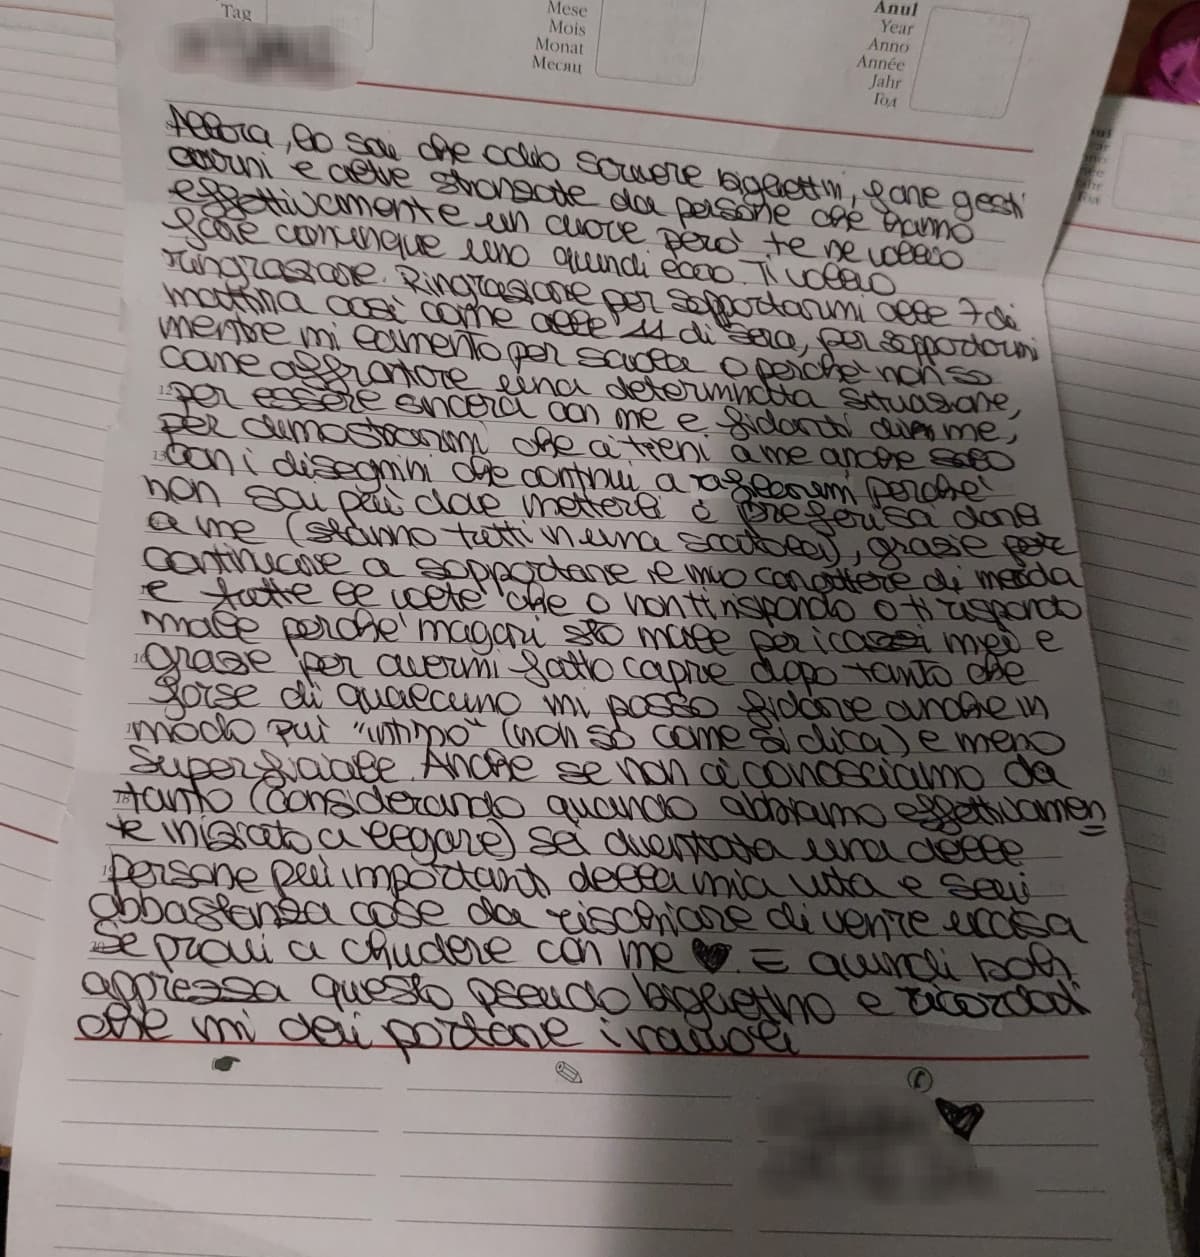 Tag
Mese
Mois
Monat
Месяц
Anul
Year
Anno
Année
Jahr
Год
Allora, lo sai che odio scrivere bigliettini, fare gesti
carini e altre stronzate da persone che hanno
effettivamente un cuore però te ne voglio
fare comunque uno quindi ecco. Ti voglio
ringraziare. Ringraziare per sopportarmi alle 7 di
mattina così come alle 11 di sera, per sopportarmi
mentre mi lamento per scuola o perché non so
come affrontare una determinata situazione,
per essere sincera con me e fidarti di me,
per dimostrarmi che ci tieni a me anche solo
con i disegnini che continui a rifilarmi perché
non sai più dove metterli e preferisci darli
a me (stanno tutti in una scatola), grazie per
continuare a sopportare il mio carattere di merda
e tutte le volte che o non ti rispondo o ti rispondo
male perché magari sto male per i cazzi miei e
grazie per avermi fatto capire dopo tanto che
forse di qualcuno mi posso fidare anche in
modo più "intimo" (non so come si dica) e meno
superficiale. Anche se non ci conosciamo da
tanto (considerando quando abbiamo effettivamen=
te iniziato a legare) sei diventata una delle
persone più importanti della mia vita e sai
abbastanza cose da rischiare di venire uccisa
se provi a chiudere con me ♥. = quindi boh
apprezza questo pseudo bigliettino e ricordati
che mi devi portare i ravioli